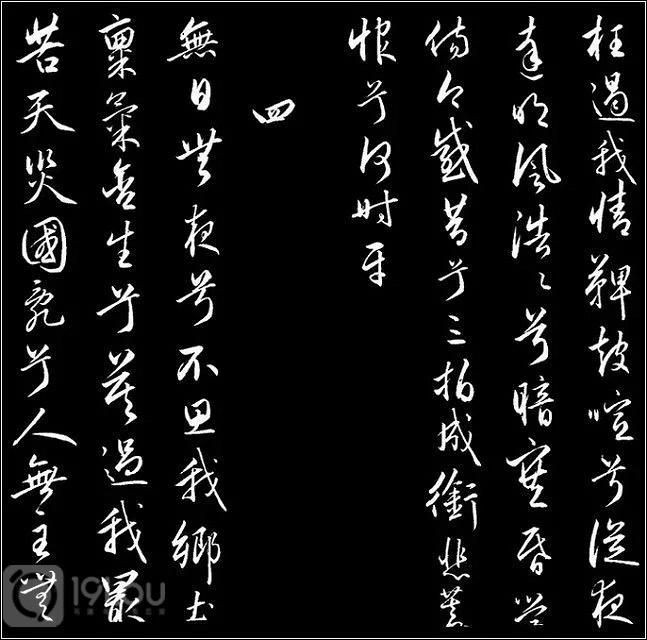 枉遏我情鞞鼓喧兮從夜
達明風浩〻兮暗塞昏營
傷今感昔兮三拍成銜悲蓄
恨兮何時平
四
無日無夜兮不思我鄉土
稟氣含生兮莫過我最
苦天災國亂兮人無主
19YOU